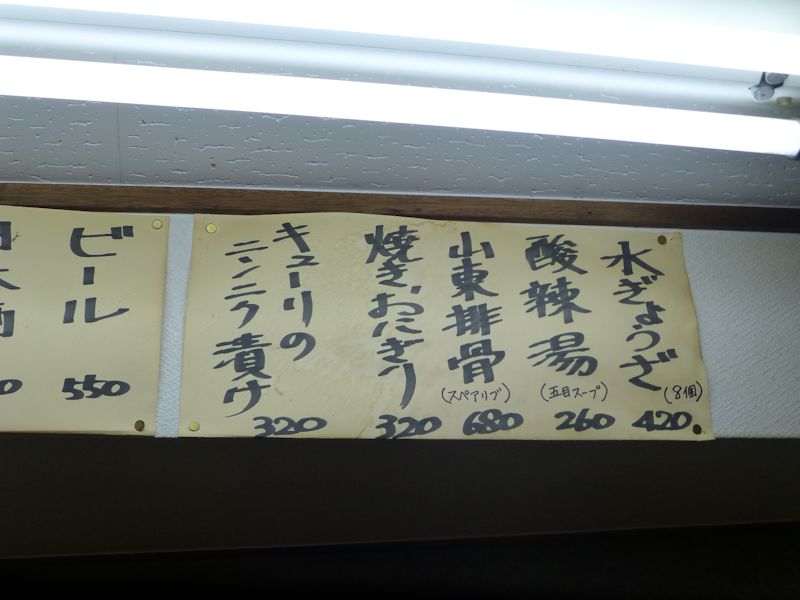 水ぎょうざ
(8個)
420
酸辣湯
(五目スープ)
260
山東排骨
(スペアリブ)
680
焼き、おにぎり
320
キューリの
ニンニク漬ケ
320
ビール
550